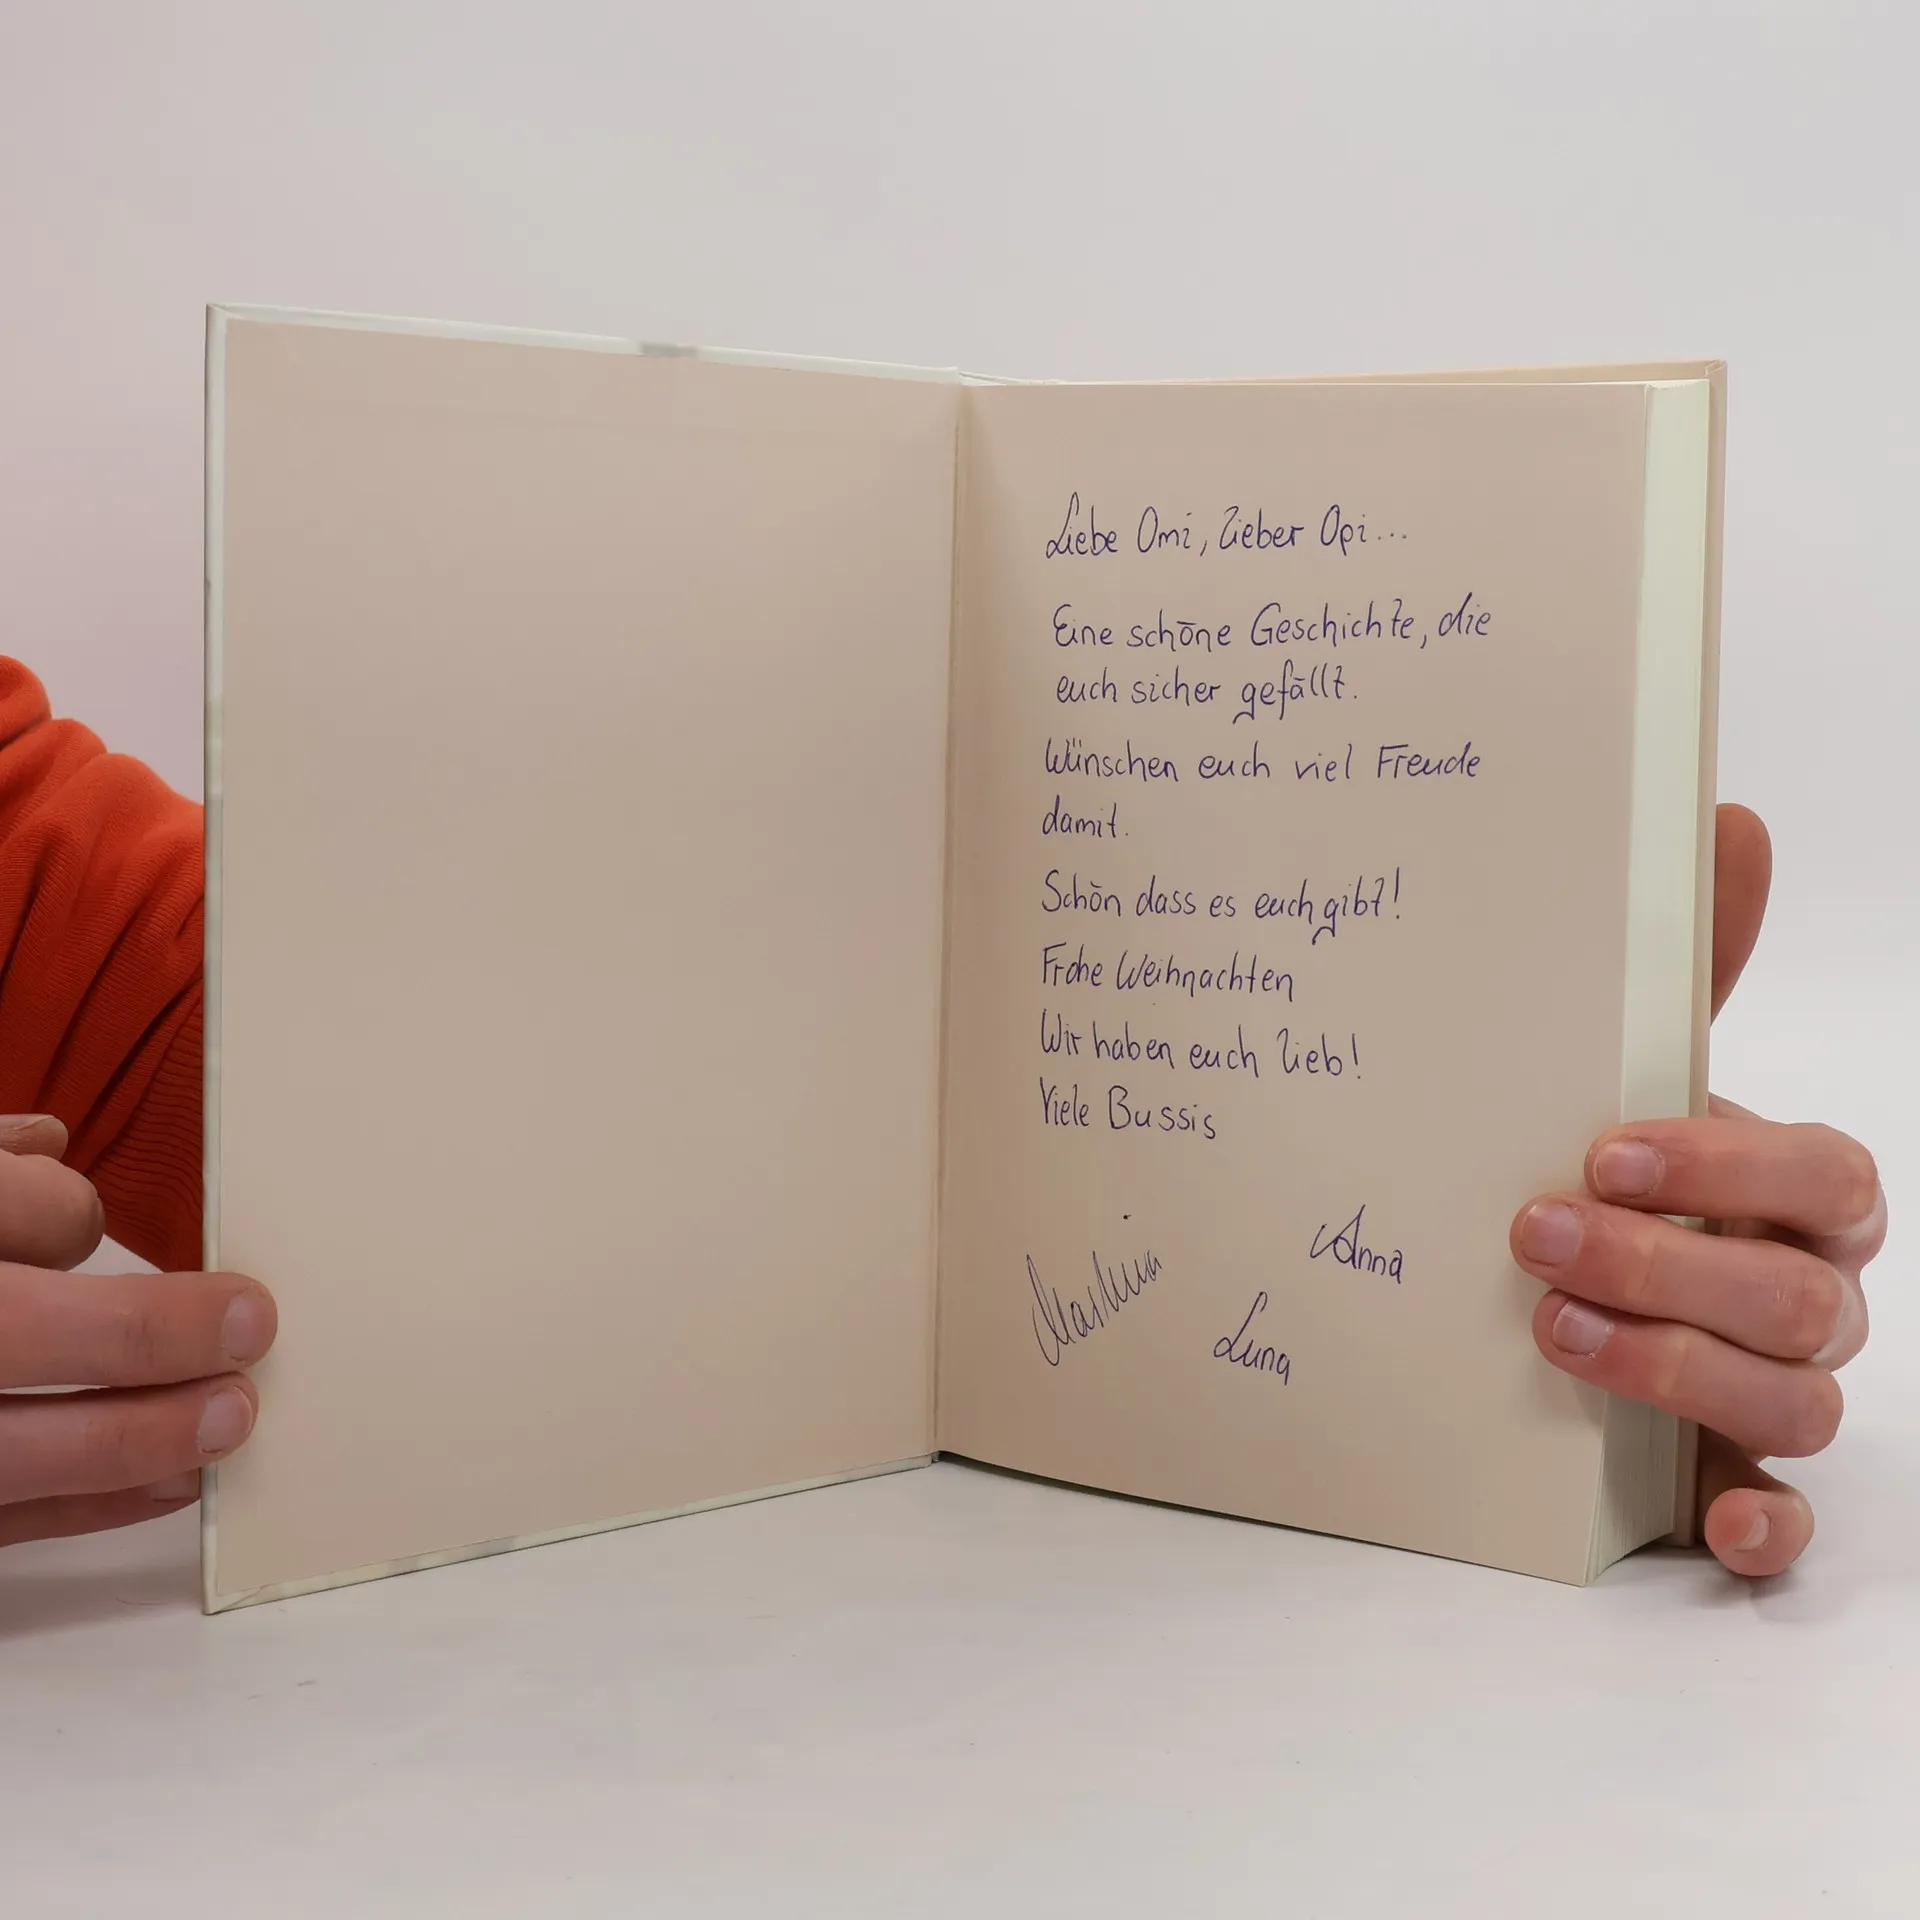 Liebe Omi, lieber Opi...
Eine schöne Geschichte, die
euch sicher gefällt.
Wünschen euch viel Freude
damit.
Schön dass es euch gibt!
Frohe Weihnachten
Wir haben euch lieb!
Viele Bussis
Anna
Luna